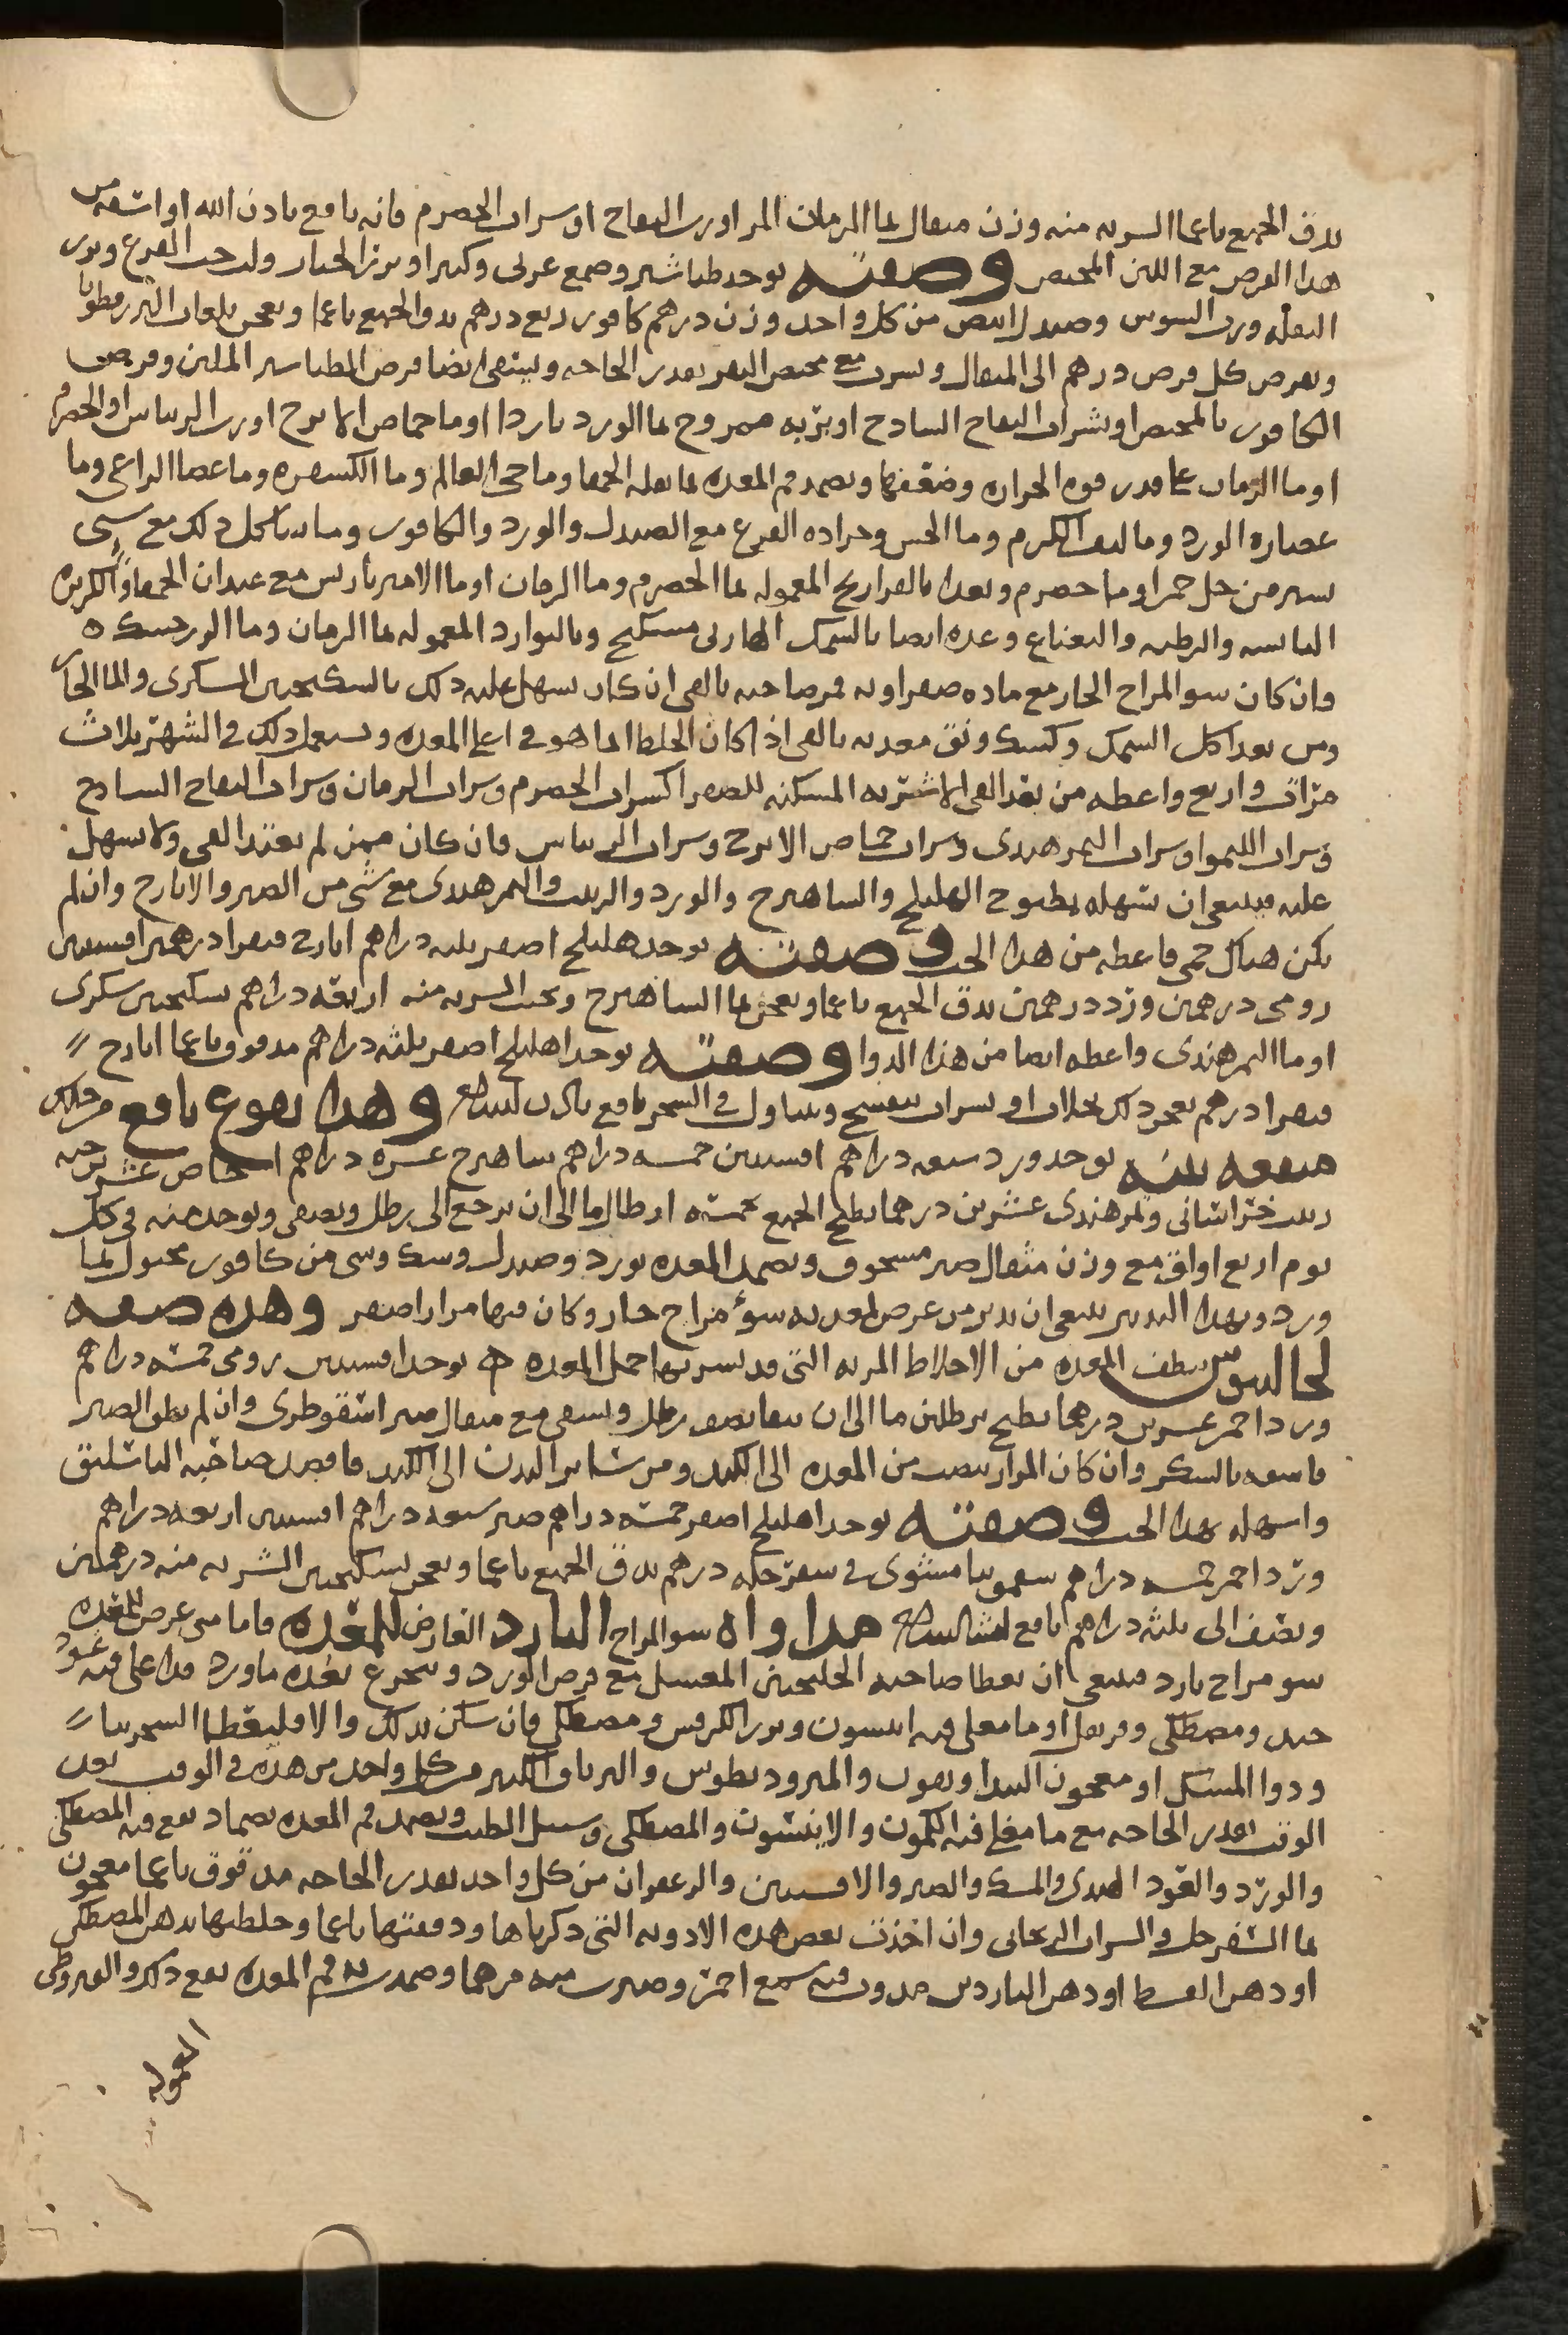 يدق الجميع ناعما الشربه منه وزن مثقال بماء الرمان المز او رب التفاح او شراب الحصرم فانه نافع باذن الله او اسقه من
هذا القرص مع اللبن المخيض وصفته يوخذ طباشير وصمغ عربي وكثيرا وبزر الخيار ولب حب القرع وبزر
البقله ورب السوس وصندل ابيض من كل واحد وزن درهم كافور ربع درهم يدق الجميع ناعما ويعجن بلعاب البزر قطونا
ويقرص كل قرص درهم الى المثقال ويشرب مع مخيض البقر بقدر الحاجه ويسقى ايضا قرص الطباشير الملين وقرص
الكافور بالمخيض او بشراب التفاح الساذج او بربه ممزوج بماء الورد باردا او ماء حماض الاترج او رب الريباس او الحصرم
او ماء الرمان على قدر قوه الحراره وضعفها ويضمد فم المعده بماء بقله الحمقا وماء حي العالم وماء الكسفره وماء عصا الراعي وماء
عصاره الورد وماء ليف الكرم وماء الخس وجراده القرع مع الصندل والورد والكافور وما شاكل ذلك مع شي
يسير من خل خمر او ماء حصرم ويغذا بالفراريج المعموله بماء الحصرم وماء الرمان او ماء الامير باريس مع عيدان الحمقا والكزبره
اليابسه والرطبه والنعناع وغذه ايضا بالسمك الهازلي مسكبج وبالبوارد المعموله بماء الرمان وماء الزرشك ه
وان كان سو المزاج الحار مع ماده صفراويه فمر صاحبه بالقي ان كان يسهل عليه ذلك بالسكنجبين السكري والماء الحار
ومن بعد اكل السمك وكشك ونق معدته بالقي اذا كان الخلط انما هو في اعلى المعده ويستعمل ذلك في الشهر ثلاث
مرات واربع واعطه من بعد القي الاشربه المسكنه للصفرا كشراب الحصرم وشراب الرمان وشراب التفاح الساذج
وشراب الليمو او شراب التمر هندي وشراب حماض الاترج وشراب الريباس فان كان ممن لم يعتد القي ولا يسهل
عليه فينبغي ان تسهله بطبوخ الهليلج والشاهترج والورد والزبيب والتمر هندي مع شي من الصبر والايارج وان لم
يكن هناك حمى فاعطه من هذا الحب وصفته يوخذ هليلج اصفر ثلثه دراهم ايارج فيقرا درهمين افسنتين
رومي درهمين وورد درهمين يدق الجميع ناعما ويعجن بماء الشاهترج ويحبب الشربه منه اربعه دراهم بسكنجبين سكري
او ماء التمر هندي واعطه ايضا من هذا الدوا وصفته يوخذ اهليلج اصفر ثلثه دراهم مدقوق ناعما ايارج
فيقرا درهم يعجن ذلك بجلاب او بشراب بنفسج ويتناول في السحر نافع باذن الله وهذا نقوع نافع من ذلك
منفعه بينه يوخذ ورد سبعه دراهم افسنتين خمسه دراهم شاهترج عشره دراهم اجاص عشرين حبه
زبيب خراساني وتمر هندي عشرين درهما يطبخ الجميع بخمسه ارطال ماء الى ان يرجع الى رطل ويصفى ويوخذ منه في كل
يوم اربع اواق مع وزن مثقال صبر مسحوق ويضمد المعده بورد وصندل وسك وشي من كافور مجبول بماء
ورد وبهذا التدبير ينبغي ان تدبر من عرض لمعدته سوء مزاج حار وكان فيها مرارا اصفر وهذه صفه
لجالينوس ينظف المعده من الاخلاط المريه التي قد تشربها خمل المعده يوخذ افسنتين رومي خمسه دراهم
ورد احمر عشرين درهما يطبخ برطلين ماء الى ان يبقا نصف رطل ويسقى مع مثقال صبر اسقوطري وان لم يطق الصبر
فاسقه بالسكر وان كان المرار ينصب من المعده الى الكبد ومن سائر البدن الى الكبد فافصد صاحبه الباسليق
واسهله بهذا الحب وصفته يوخذ اهليلج اصفر خمسه دراهم صبر سبعه دراهم افسنتين اربعه دراهم
وورد احمر خمسه دراهم سقمونيا مشوي في سفرجله درهم يدق الجميع ناعما ويعجن بسكنجبين الشربه منه درهمين
ونصف الى ثلثه دراهم نافع ان شا الله مداواه سو المزاج البارد العارض للمعده فاما متى عرض للمعده
سو مزاج بارد فينبغي ان يعطا صاحبه الجلنجبين المعسل مع قرص الورد ويتجرع بعده ماء ورد قد اغلي فيه عود
جيد ومصطكى وقرنفل او ماء مغلي فيه انيسون وبزر الكرفس ومصطكى فان سكن بذلك والا فليعطا السجرنيا
ودوا المسك او معجون البنداديقون والمثروديطوس والترياق الكبير من كل واحد من هذه في الوقت بعد
الوقت بقدر الحاجه مع ماء مغلي فيه الكمون والانيسون والمصطكى وسنبل الطيب ويضمد فم المعده بضماد يقع فيه المصطكى
والورد والعود الهندي والمسك والصبر والافسنتين والزعفران من كل واحد بقدر الحاجه مدقوق ناعما معجون
بماء السفرجل والشراب الريحاني وان اخذت بعض هذه الادويه التي ذكرناها ودققتها ناعما وخلطتها بدهن المصطكى
او دهن القسط او دهن الناردين مذوب فيه شمع احمر وصيرت منه مرهما وضمدت به فم المعده نفع ذلك والقيروطي
المعموله